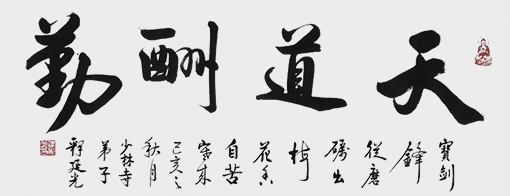 天道酬勤
寶劍
鋒
從磨
礪出
梅
花香
自苦
寒來
己亥之
秋月
少林寺
弟子
釋延光